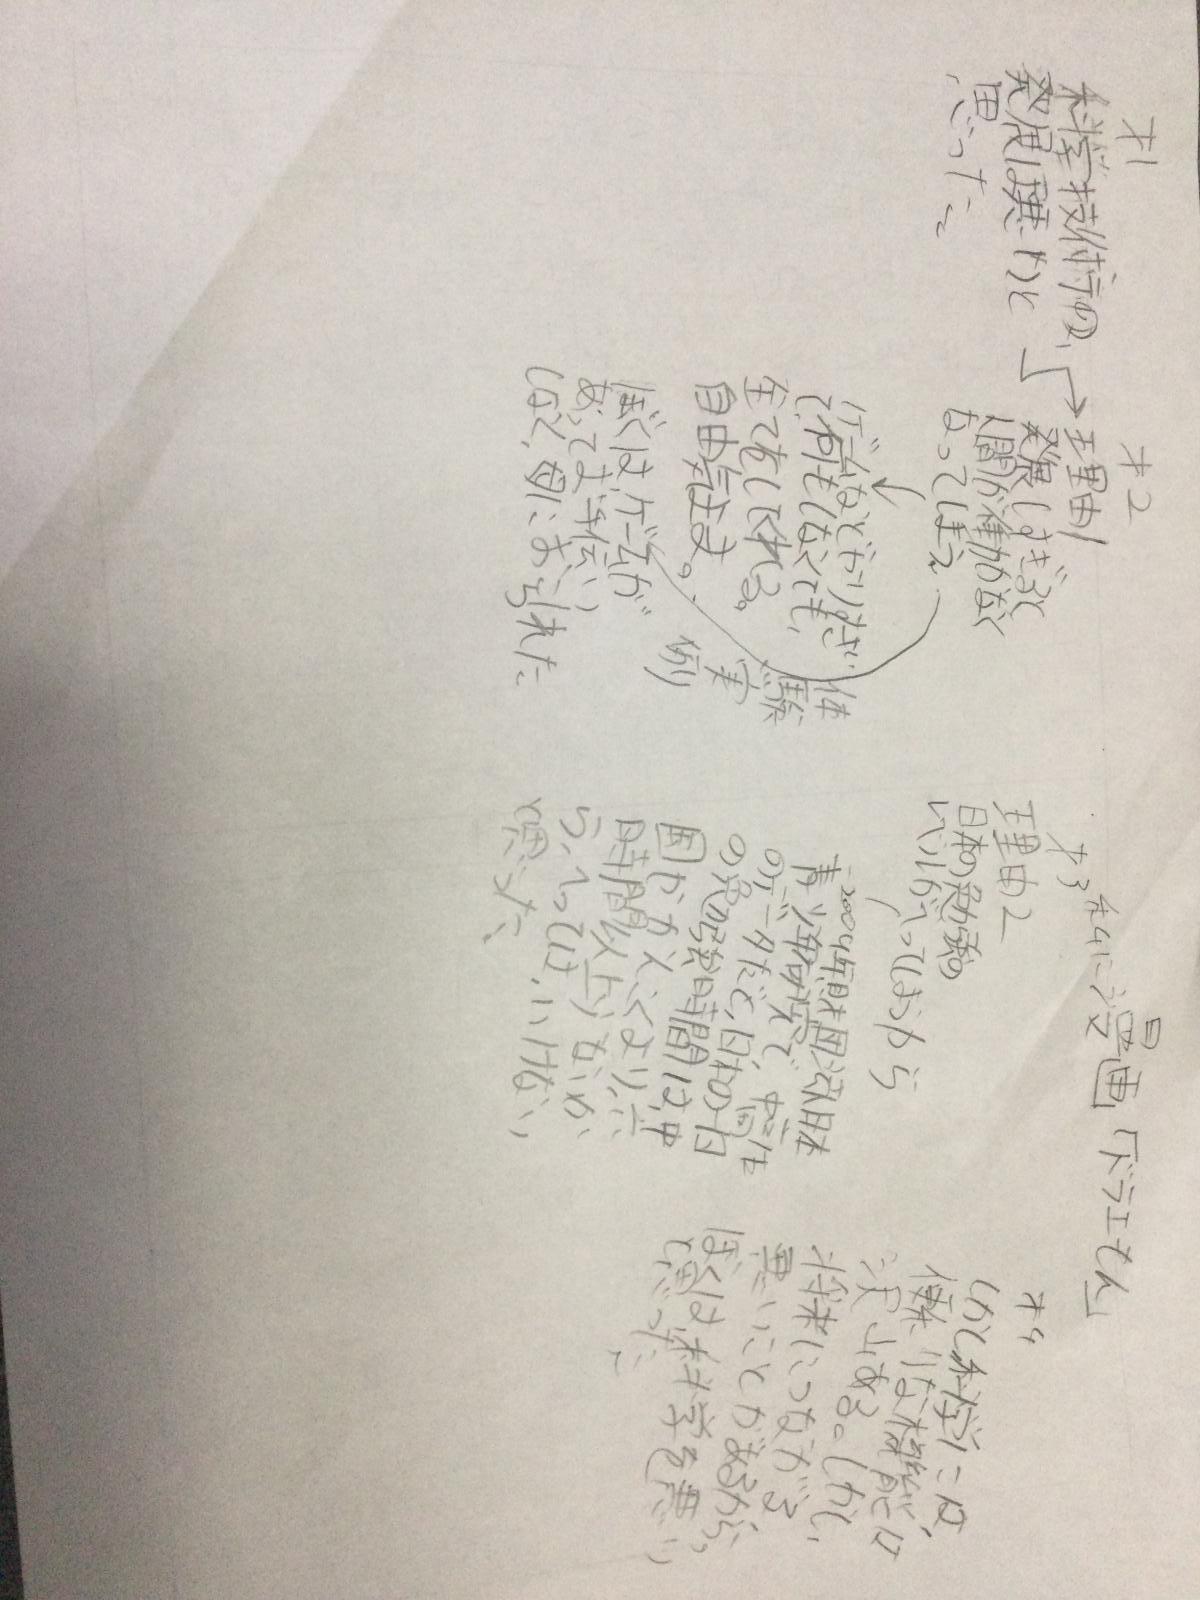 オ1
科学技術の
発展は悪いと
思った。
オ2
理由1
発展しすぎると
人間が働かなく
なってしまう。
ゲームなどやりすぎ
で、何もしなくても、
全てをしてくれる。
自由気まま。
体
験
実
例
ぼくは、ゲームが
あって
しなく、母におこられた
オ3
理由2
日本の勉強の
レベルがへってしまうから
2009年財団法人日本
青少年研究所
のデータだと、日本の一日
の勉強時間は、中
国やかんこくより、六
時間以上少ないか
ら、へってはいけない
と思った、
オ4に漫画「ドラエもん」
オ4
しかし科学には、
便利な機能は
沢山ある。しかし、
将来につながる
悪いことがあるから、
ぼくは科学を悪い
と思った。